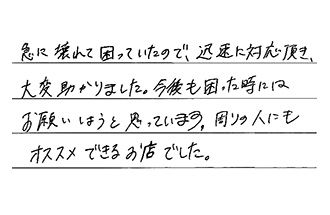 急に壊れて困っていたので、迅速に対応頂き、
大変助かりました。今後も困った時には
お願いしようと思っています。周りの人にも
オススメできるお店でした。